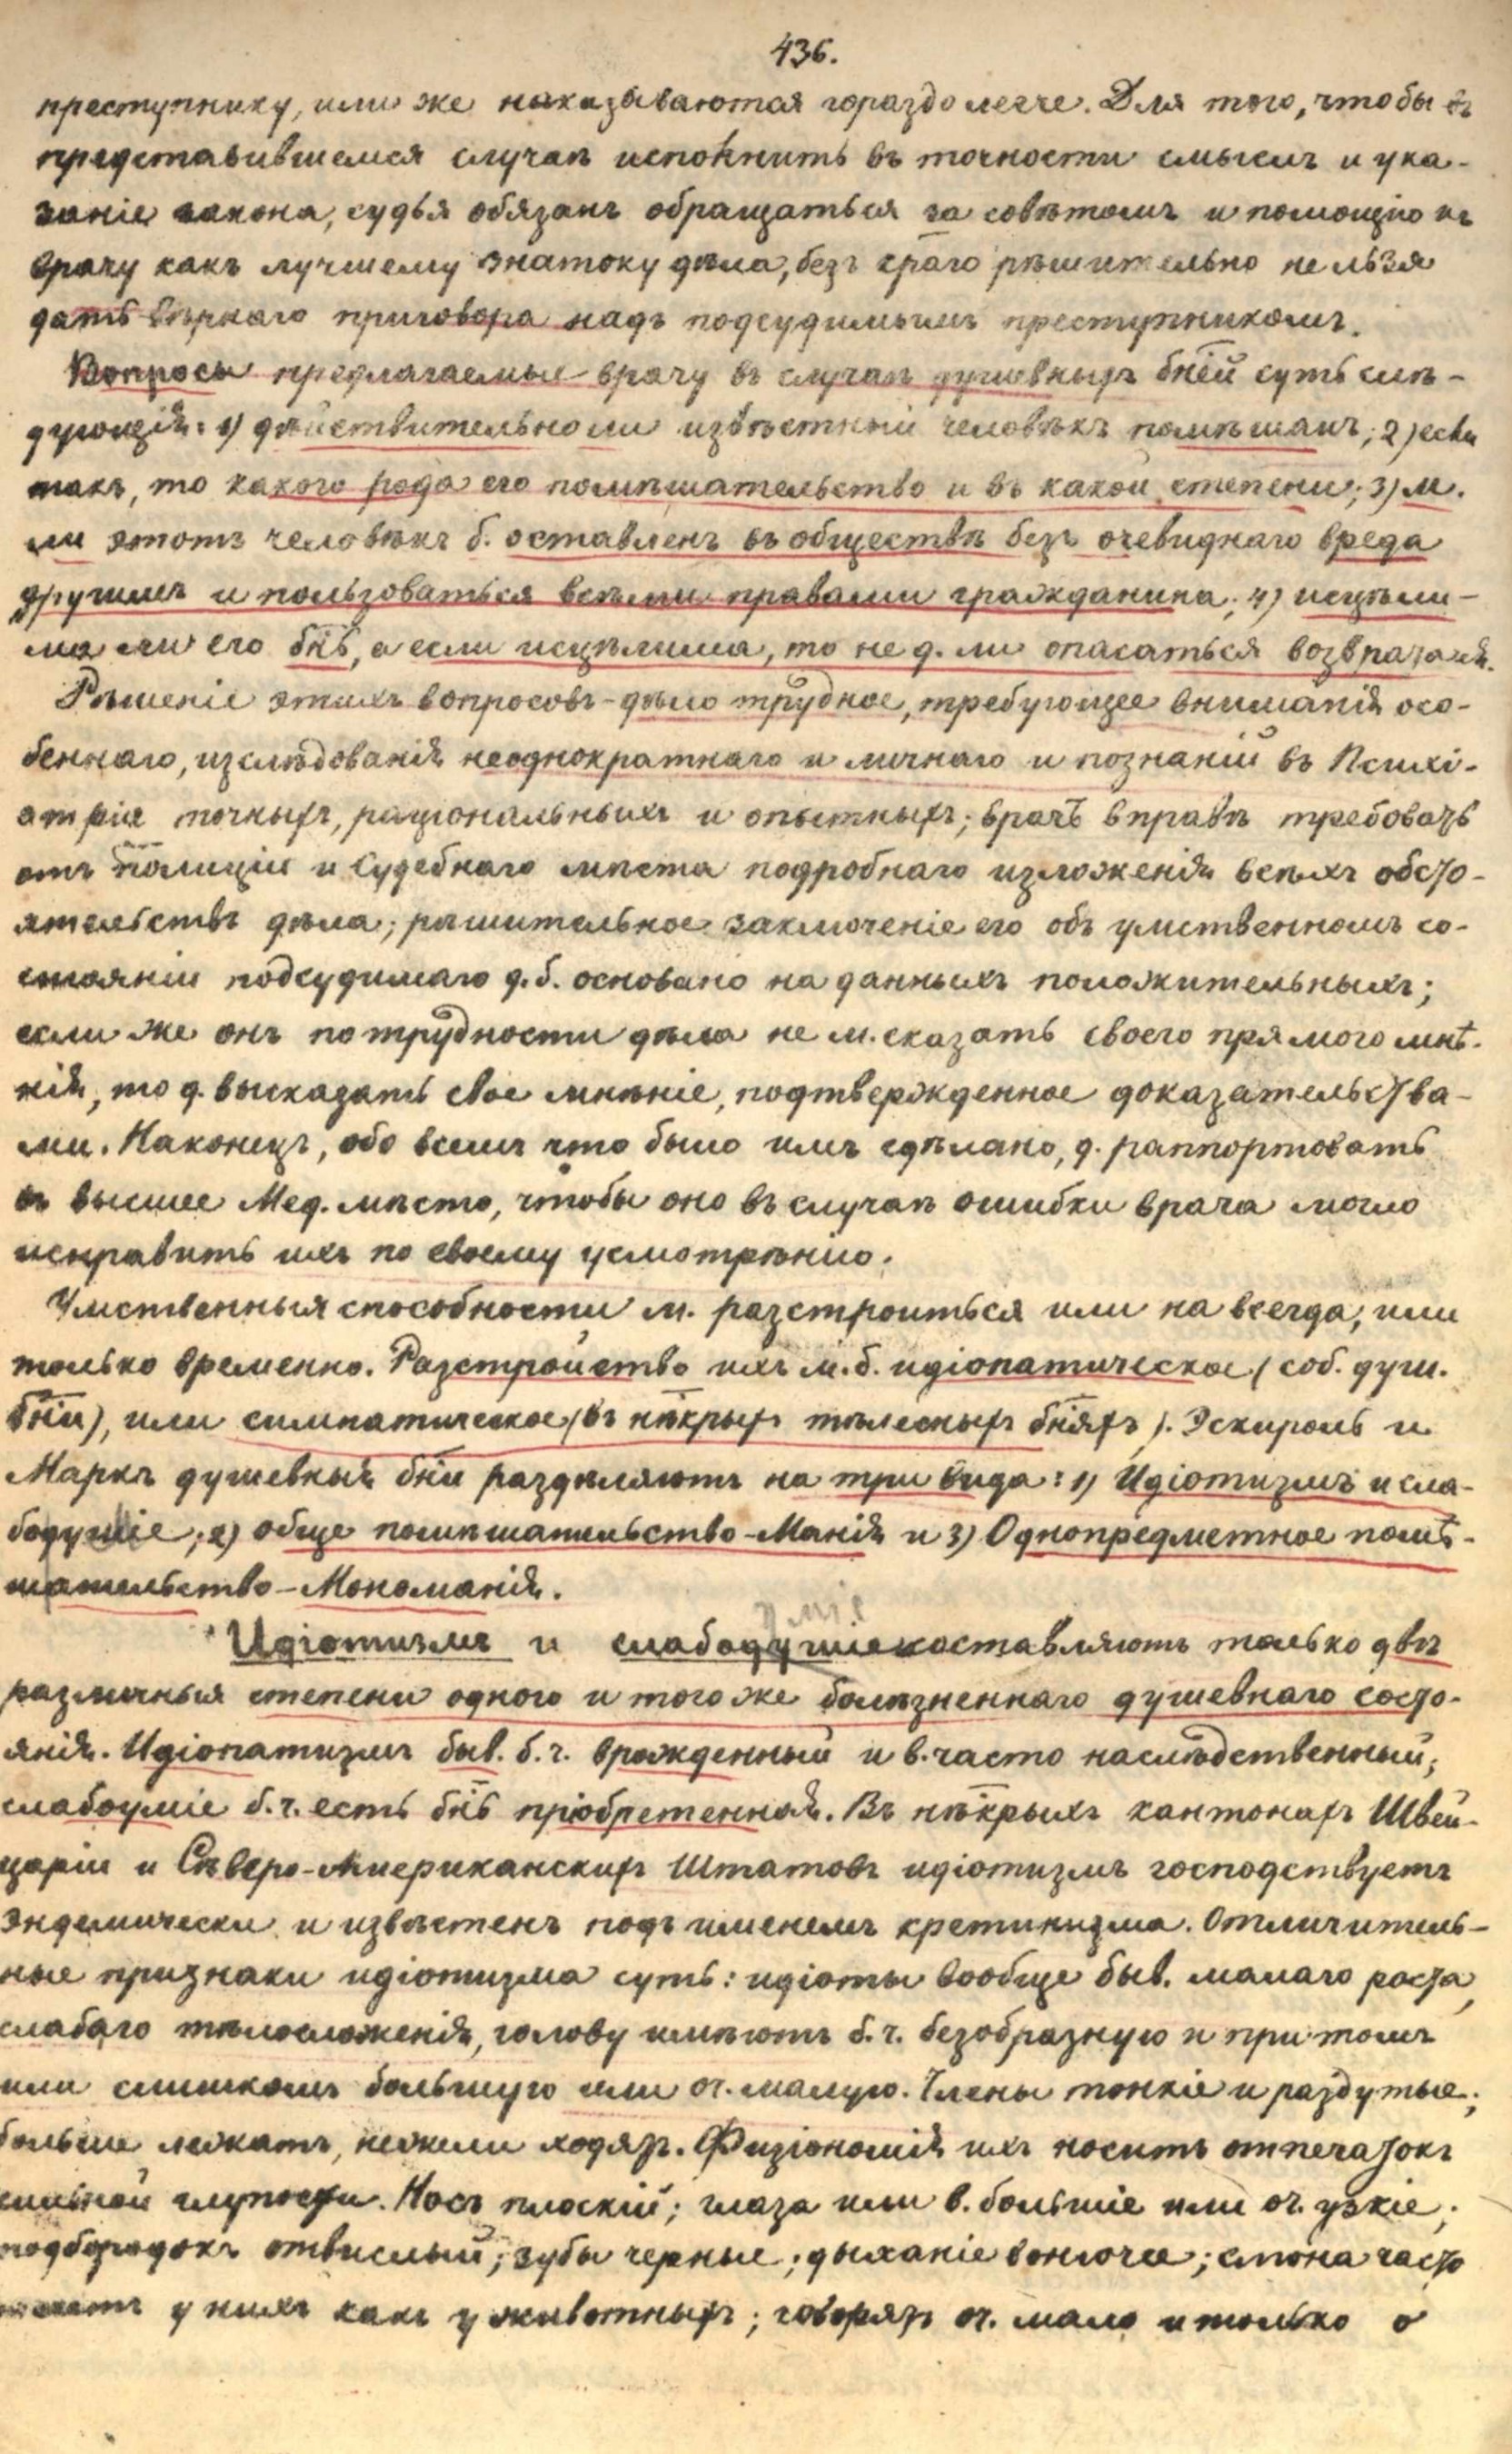 436.
преступнику, или же наказываются гораздо легче. Для того, чтобы въ
представившемся случаѣ исполнить въ точности смыслъ и ука-
заніе закона, судья обязанъ обращаться за совѣтомъ и помощію къ
врачу какъ лучшему знатоку дѣла, безъ чего рѣшительно нельзя
дать вѣрнаго приговора надъ подсудимымъ преступникомъ.
Вопросы предлагаемые врачу въ случаѣ душевныхъ бней суть слѣ-
дующія: 1) дѣйствительно ли извѣстный человѣкъ помѣшанъ; 2) если
такъ, то какого рода его помѣшательство и въ какой степени; 3) м.
ли этотъ человѣкъ б. оставленъ въ обществѣ безъ очевиднаго вреда
другимъ и пользоваться всѣми правами гражданина; 4) исцѣли-
ма ли его бнь, а если исцѣлима, то не д. ли опасаться возвращенія.
Рѣшеніе этихъ вопросовъ - дѣло трудное, требующее вниманія осо-
беннаго, изслѣдованія неоднократнаго и личнаго и познаній въ Психі-
атріи точныхъ, раціональныхъ и опытныхъ; врачъ вправѣ требовать
отъ Полиціи и Судебнаго мѣста подробнаго изложенія всѣхъ обсто-
ятельствъ дѣла; рѣшительное заключеніе его объ умственномъ со-
стояніи подсудимаго д. б. основано на данныхъ положительныхъ;
если же онъ по трудности дѣла не м. сказать своего прямого мнѣ-
нія, то д. высказать свое мнѣніе, подтвержденное доказательства-
ми. Наконецъ, обо всемъ что было имъ сдѣлано, д. раппортовать
въ высшее Мед. мѣсто, чтобы оно въ случаѣ ошибки врача могло
исправить ихъ по своему усмотрѣнію.
Умственныя способности м. разстроиться или на всегда, или
только временно. Разстройство ихъ м. б. идіопатическое (соб. душ.
бни), или симпатическое (въ нѣкрыхъ тѣлесныхъ бняхъ). Эскироль и
Маркъ душевныя бни раздѣляютъ на три вида: 1) Идіотизмъ и сла-
бодушіе; 2) обще помѣшательство - Манія и 3) Однопредметное помѣ-
шательство - Мономанія.
Идіотизмъ и слабодушіе составляютъ только двѣ
различныя степени одного и того же болѣзненнаго душевнаго состо-
янія. Идіопатизмъ быв. б. ч. врожденный и в. часто наслѣдственный;
слабоуміе б. ч. есть бнь пріобретенная. Въ нѣкрыхъ кантонахъ Швей-
царіи и Сѣверо-Американскихъ Штатовъ идіотизмъ господствуетъ
эндемически и извѣстенъ подъ именемъ кретинизма. Отличитель-
ные признаки идіотизма суть: идіоты вообще быв. малаго роста,
слабаго тѣлосложенія, голову имѣютъ б. ч. безобразную и при томъ
или слишкомъ большую или оч. малую. Члены тонкіе и раздутые;
больше лежатъ, нежели ходятъ. Физіономія ихъ носитъ отпечатокъ
сильной глупости. Носъ плоскій; глаза или в. большіе или оч. узкіе;
подбородокъ отвислый; зубы черные; дыханіе вонючее; слюна часто
течетъ у нихъ какъ у животныхъ; говорятъ оч. мало и только о